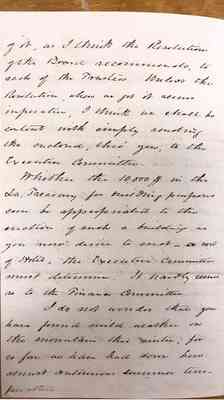 of it, as I think the Resolution
of the Board recommends, to
each of the Trustees. Unless the
Resolution, when we get it seems
imperative, I think we shall be
content with simply sending
the enclosed, thro' you, to the
Executive Committee.
Whether the 10,000 in the
La. Treasury for building purposes
can be appropriated to the
erection of such a building as
you now desire to erect - a sort
of Hotel, the Executive Committee
must determine. It hardly comes
to the Finance Committee
I do not wonder that you
have found mild weather on
the mountain this winter, for
so far we have had some here
almost summer tem-
perature